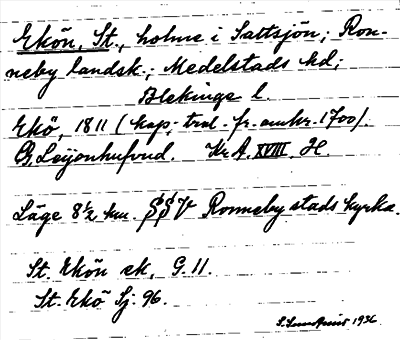 Ekön, St., holme i Saltsjön; Ron-
neby landsk.; Medelstads hd;
Blekinge l.
Ekö, 1811 (kop. trol. fr. omkr. 1700).
G. Leijonhufvud. Kr. A. XVIII. H.
Läge 8½ km. SSV Ronneby stads kyrka.
St. Ekön ek. G. 11.
St. Ekö Sj. 96.
S. Sundqvist 1936